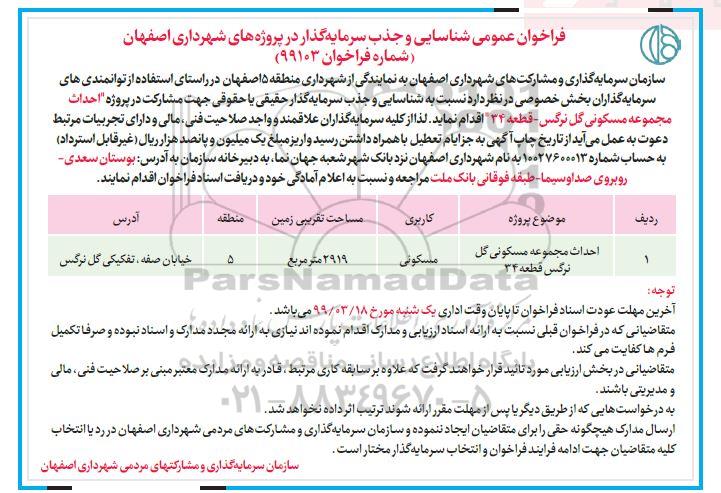 فراخوان عمومی شناسایی و جذب سرمایه‌گذار در پروژه‌های شهرداری اصفهان
(شماره فراخوان ۹۹۱۰۳)
سازمان سرمایه‌گذاری و مشارکت‌های شهرداری اصفهان به نمایندگی از شهرداری منطقه ۵ اصفهان در راستای استفاده از توانمندی های
سرمایه‌گذاران بخش خصوصی در نظر دارد نسبت به شناسایی و جذب سرمایه‌گذار حقیقی یا حقوقی جهت مشارکت در پروژه "احداث
مجموعه مسکونی گل نرگس- قطعه ۳۴" اقدام نماید. لذا از کلیه سرمایه‌گذاران علاقمند و واجد صلاحیت فنی، مالی و دارای تجربیات مرتبط
دعوت به عمل می‌آید از تاریخ چاپ آگهی به جز ایام تعطیل با همراه داشتن رسید واریز مبلغ یک میلیون و پانصد هزار ریال (غیرقابل استرداد)
به حساب شماره ۱۰۰۲۷۶۰۰۰۱۳ به نام شهرداری اصفهان نزد بانک شهر شعبه جهان نما، به دبیرخانه سازمان به آدرس: بوستان سعدی-
روبروی صداوسیما-طبقه فوقانی بانک ملت مراجعه و نسبت به اعلام آمادگی خود و دریافت اسناد فراخوان اقدام نمایند.
ردیف موضوع پروژه کاربری مساحت تقریبی زمین منطقه آدرس
۱ احداث مجموعه مسکونی گل نرگس قطعه ۳۴ مسکونی ۲۹۱۹ متر مربع ۵ خیابان صفه ، تفکیکی گل نرگس
توجه:
آخرین مهلت عودت اسناد فراخوان تا پایان وقت اداری یک شنبه مورخ ۹۹/۰۳/۱۸ می‌باشد.
متقاضیانی که در فراخوان قبلی نسبت به ارائه اسناد ارزیابی و مدارک اقدام نموده اند نیازی به ارائه مجدد مدارک و اسناد نبوده و صرفا تکمیل
فرم ها کفایت می کند.
متقاضیانی در بخش ارزیابی مورد تائید قرار خواهند گرفت که علاوه بر سابقه کاری مرتبط ، قادر به ارائه مدارک معتبر مبنی بر صلاحیت فنی، مالی
و مدیریتی باشند.
به درخواست‌هایی که از طریق دیگر یا پس از مهلت مقرر ارائه شوند ترتیب اثر داده نخواهد شد.
ارسال مدارک هیچگونه حقی را برای متقاضیان ایجاد ننموده و سازمان سرمایه‌گذاری و مشارکت‌های مردمی شهرداری اصفهان در رد یا انتخاب
کلیه متقاضیان جهت ادامه فرایند فراخوان و انتخاب سرمایه‌گذار مختار است .
سازمان سرمایه‌گذاری و مشارکتهای مردمی شهرداری اصفهان
ParsNamadData
پایگاه اطلاع رسانی مناقصه و مزایده
۰۲۱-۸۸۳۴۹۶۷۰-۵